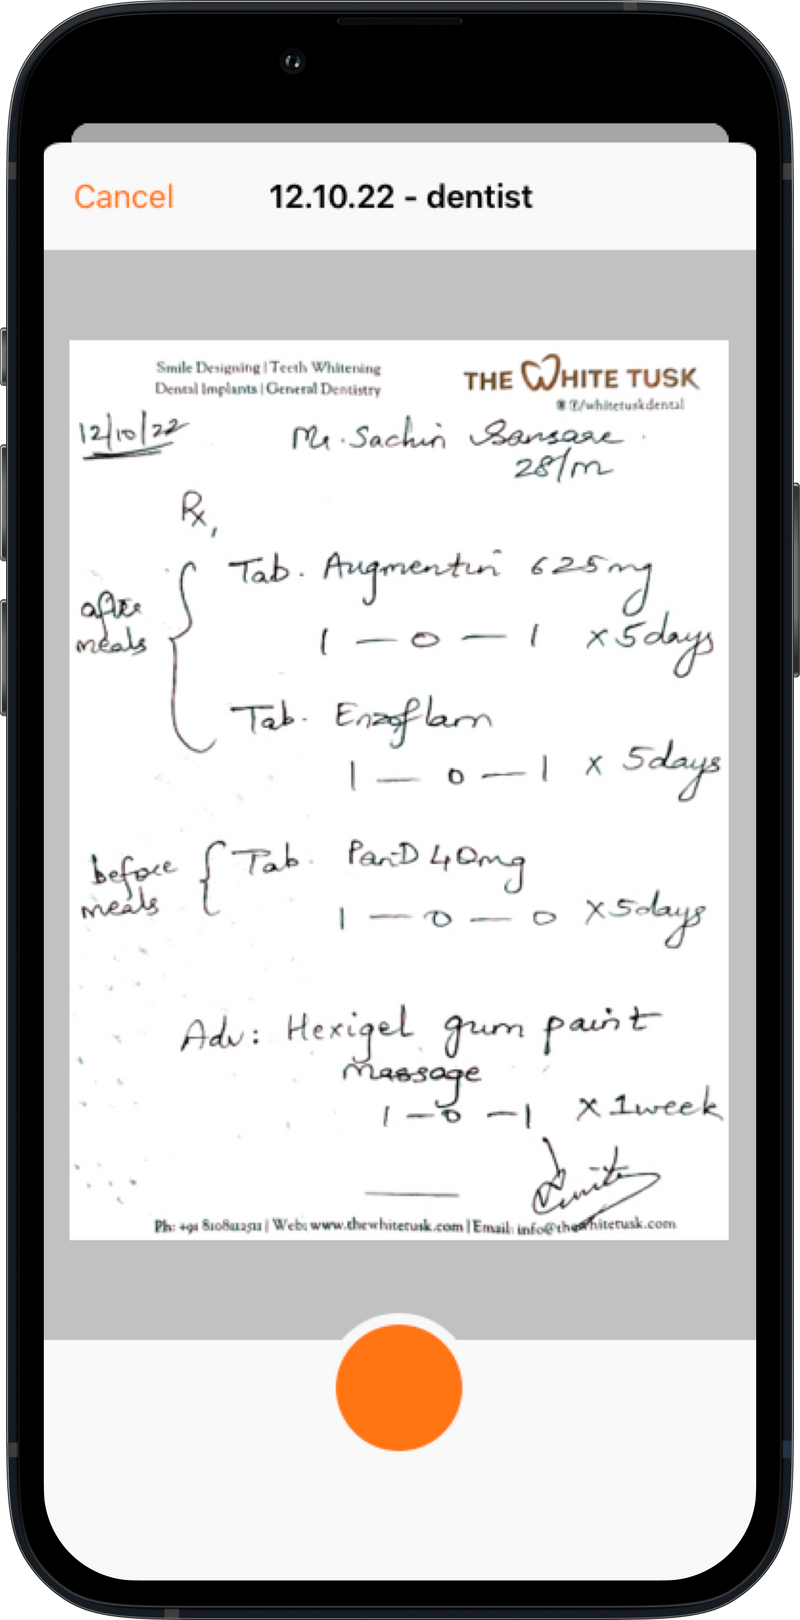 Cancel 12.10.22 - dentist
Smile Designing | Teeth Whitening
Dental Implants | General Dentistry
THE WHITE TUSK
/whitetuskdental
12/10/22
Mr. Sachin Sansare.
28/m
Rx,
after meals
Tab. Augmentin 625mg
1 — 0 — 1 x 5days
Tab. Enzoflam
1 — 0 — 1 x 5days
before meals
Tab. Pan-D 40mg
1 — 0 — 0 x 5days
Adv: Hexigel gum paint
massage
1 — 0 — 1 x 1week
Web: www.thewhitetusk.com | Email: info@thewhitetusk.com